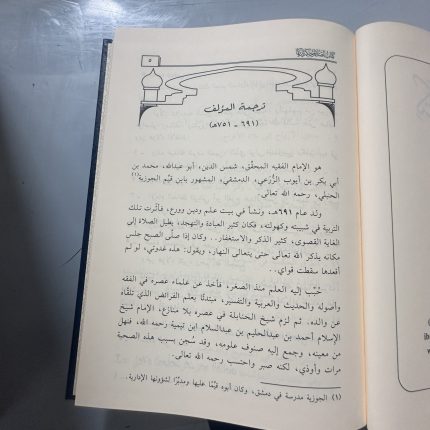 ٥
ترجمة المؤلف
(٦٩١ - ٧٥١هـ)
هو الإمام الفقيه المحقق، شمس الدين، أبو عبدالله، محمد بن
أبي بكر بن أيوب الزُّرَعي، الدمشقي، المشهور بابن قيّم الجوزية(١)
الحنبلي، رحمه الله تعالى.
ولد عام ٦٩١هـ، ونشأ في بيت علم ودين وورع، فأثرت تلك
التربية في شبيبته وكهولته، فكان كثير العبادة والتهجد، يطيل الصلاة إلى
الغاية القصوى، كثير الذكر والاستغفار.. وكان إذا صلّى الصبح جلس
مكانه يذكر الله تعالى حتى يتعالى النهار، ويقول: هذه غدوتي، لو لم
أقعدها سقطت قواي..
حُبّب إليه العلم منذ الصغر، فأخذ عن علماء عصره في الفقه
وأصوله والحديث والعربية والتفسير، مبتدئا بعلم الفرائض الذي تلقّاه
عن والده. ثم لزم شيخ الحنابلة في عصره بلا منازع، الإمام شيخ
الإسلام أحمد بن عبدالحليم بن عبدالسلام ابن تيمية رحمه الله، فنهل
من معينه، وجمع إليه صنوف علومه، وقد سُجن بسبب هذه الصحبة
مرات وأوذي، لكنه صبر واحتسب رحمه الله تعالى.
(١) الجوزية مدرسة في دمشق، وكان أبوه قيّمًا عليها ومديرًا لشؤونها الإدارية..